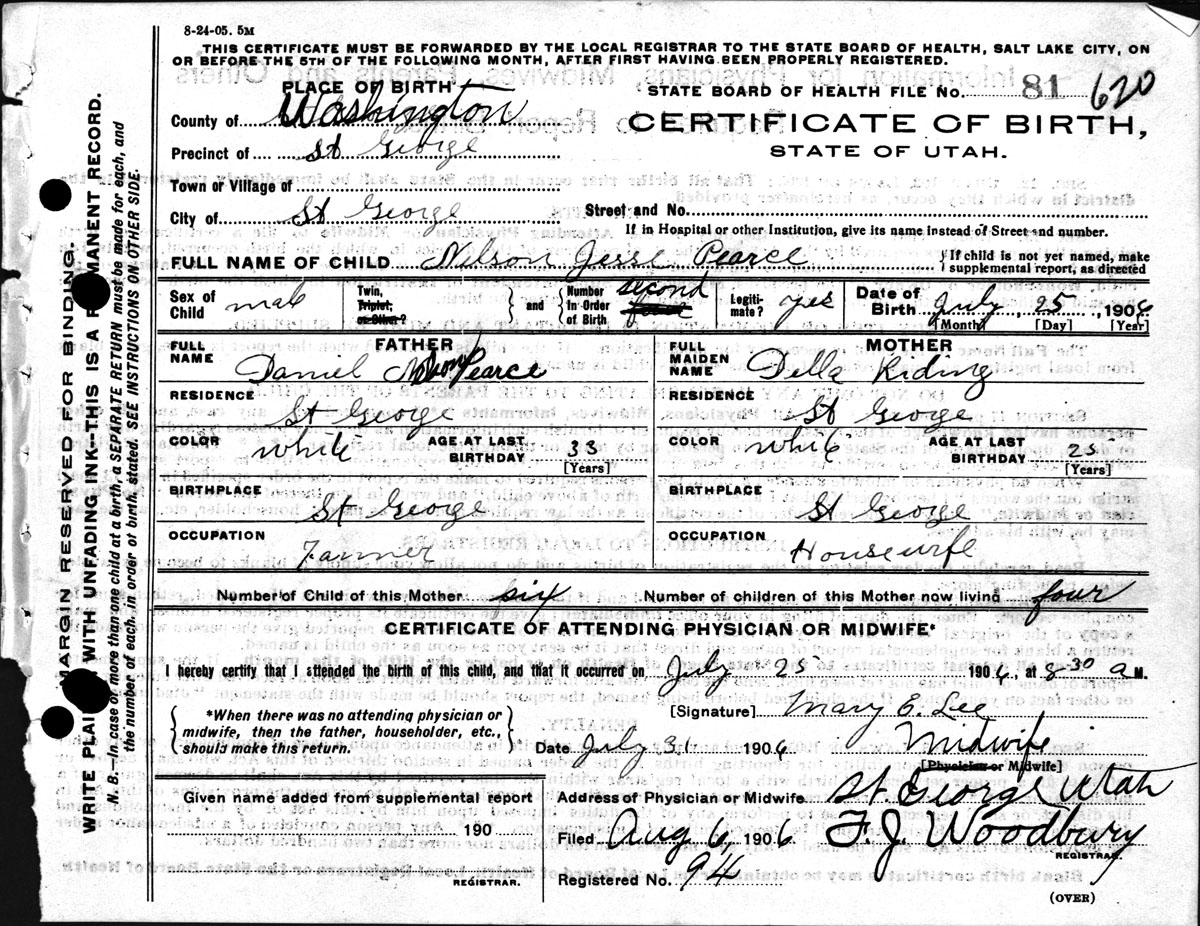 8-24-05. 5M
THIS CERTIFICATE MUST BE FORWARDED BY THE LOCAL REGISTRAR TO THE STATE BOARD OF HEALTH, SALT LAKE CITY, ON
OR BEFORE THE 5TH OF THE FOLLOWING MONTH, AFTER FIRST HAVING BEEN PROPERLY REGISTERED.
PLACE OF BIRTH
STATE BOARD OF HEALTH FILE No. 81 620
County of Washington
CERTIFICATE OF BIRTH,
STATE OF UTAH.
Precinct of St George
Town or Village of
City of St George Street and No.
If in Hospital or other Institution, give its name instead of Street and number.
FULL NAME OF CHILD Nelson Jesse Pearce { If child is not yet named, make
supplemental report, as directed
Sex of Child male Twin, Triplet, or Other? } and { Number In Order of Birth second Legiti- mate? yes Date of Birth July, 25, 1906
[Month] [Day] [Year]
FATHER
FULL NAME Daniel Nelson Pearce
RESIDENCE St George
COLOR White AGE AT LAST BIRTHDAY 33
[Years]
BIRTHPLACE St George
OCCUPATION Farmer
MOTHER
FULL MAIDEN NAME Della Riding
RESIDENCE St George
COLOR White AGE AT LAST BIRTHDAY 25
[Years]
BIRTHPLACE St George
OCCUPATION Housewife
Number of Child of this Mother six Number of children of this Mother now living four
CERTIFICATE OF ATTENDING PHYSICIAN OR MIDWIFE*
I hereby certify that I attended the birth of this child, and that it occurred on July 25 1906, at 8-30 a M.
{ *When there was no attending physician or
midwife, then the father, householder, etc.,
should make this return. }
[Signature] Mary E. Lee
Date July 31 1906 Midwife
[Physician or Midwife]
Given name added from supplemental report
190
REGISTRAR.
Address of Physician or Midwife. St. George Utah
Filed Aug 6, 1906 F. J. Woodbury
REGISTRAR.
Registered No. 94
(OVER)
MARGIN RESERVED FOR BINDING.
WRITE PLAINLY WITH UNFADING INK--THIS IS A PERMANENT RECORD.
N. B. In case of more than one child at a birth, a SEPARATE RETURN must be made for each, and
the number of each, in order of birth, stated. SEE INSTRUCTIONS ON OTHER SIDE.